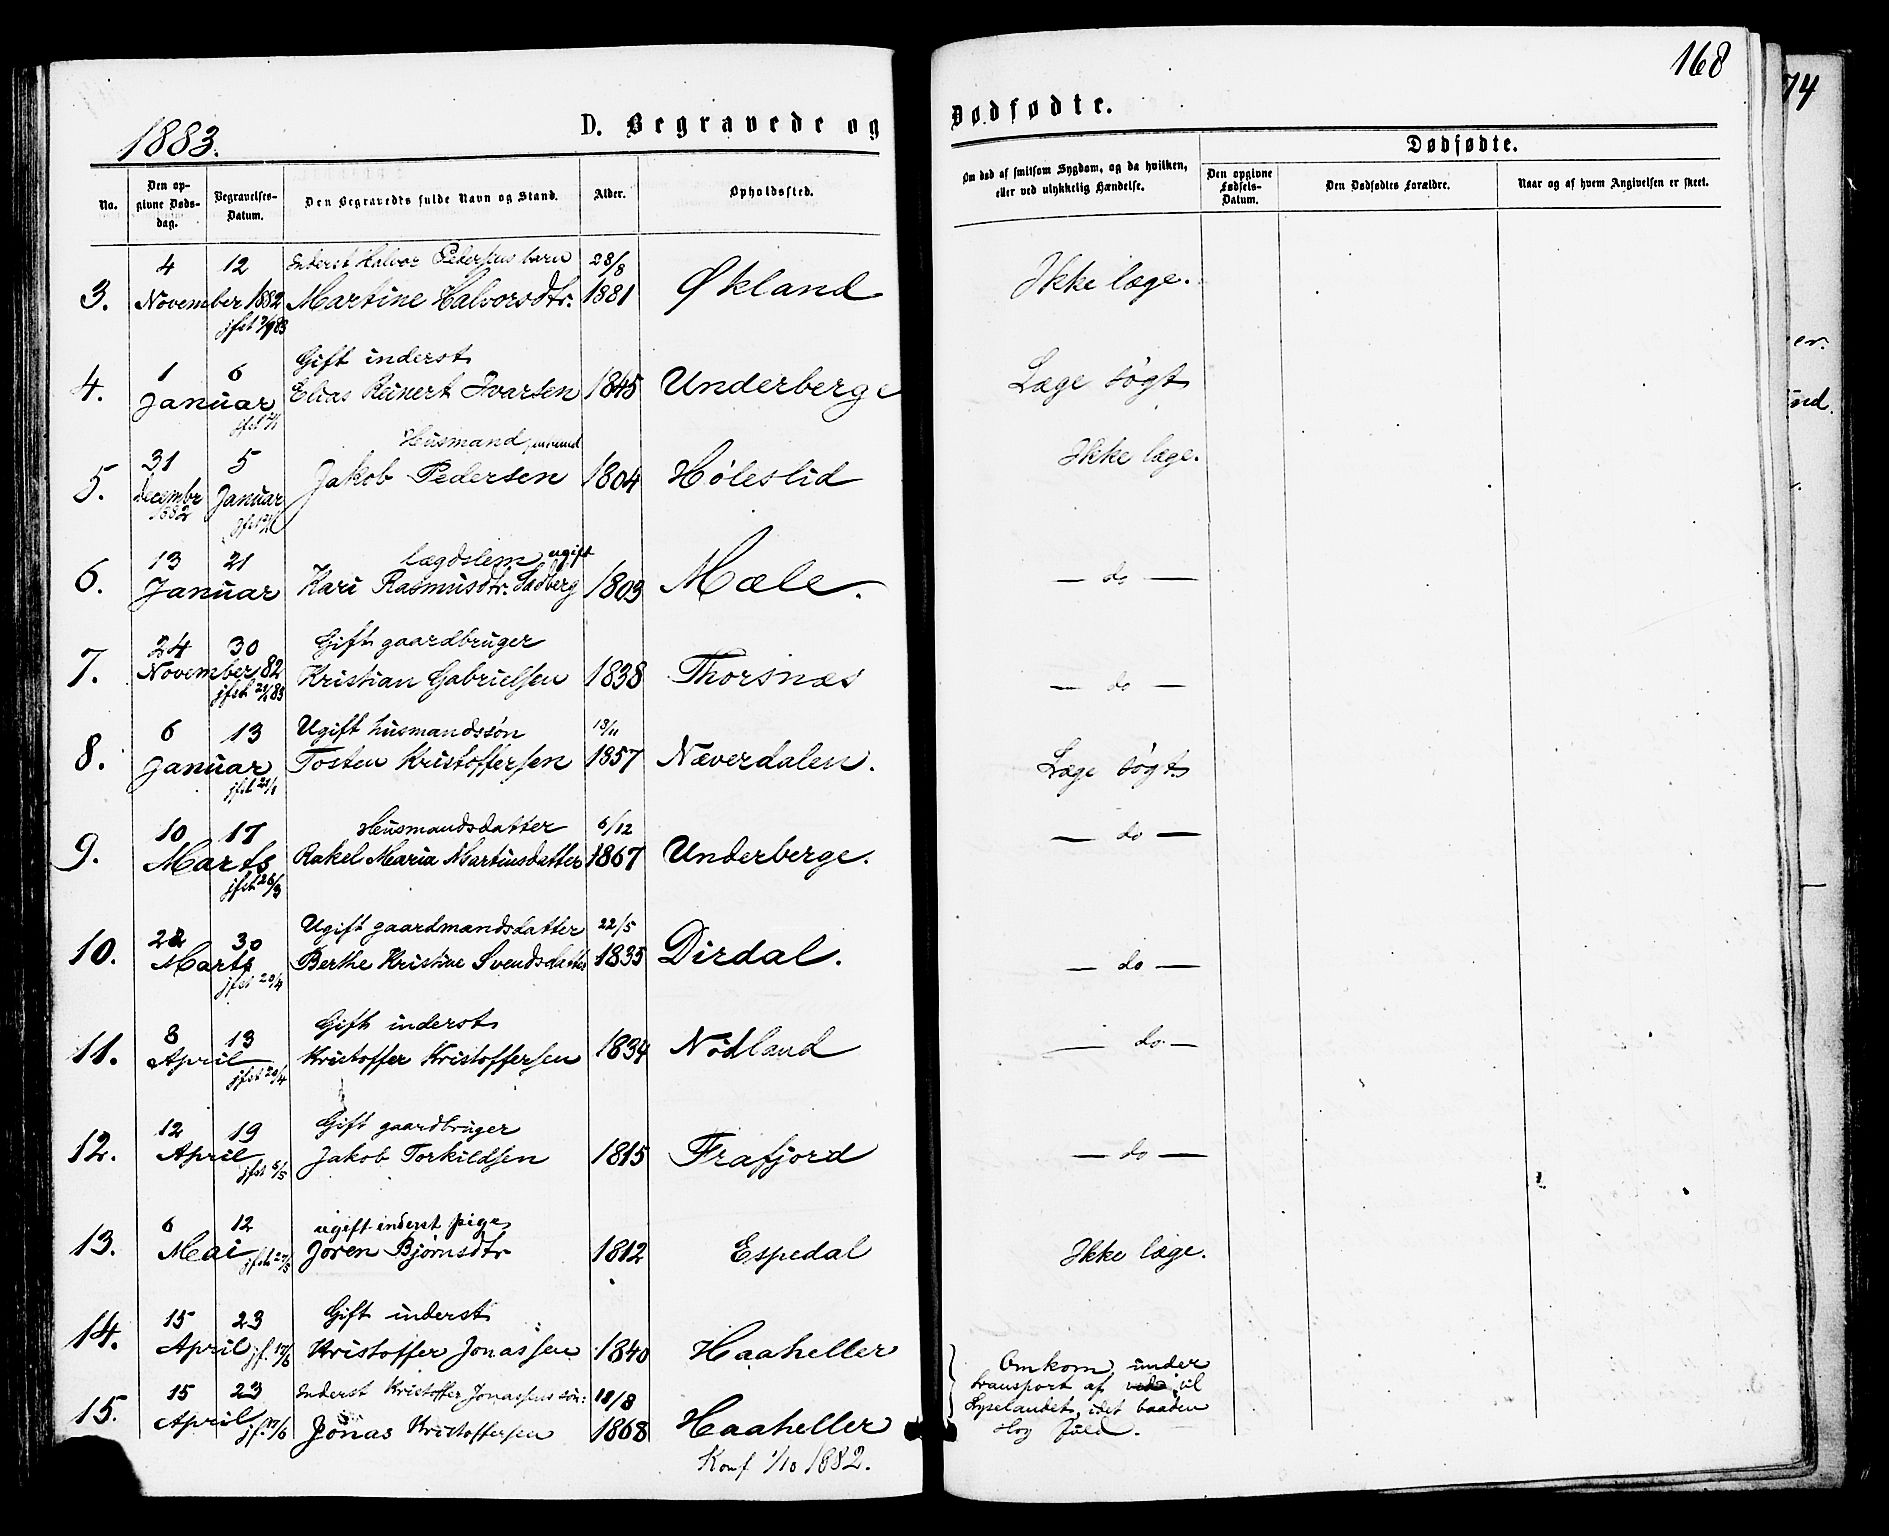 168
74
1883.
D. Begravede og Dødfødte.
Dødfødte.
No.
Den opgivne Dødsdag.
Begravelses-Datum.
Den Begravedes fulde Navn og Stand.
Alder.
Opholdssted.
Om død af smitsom Sygdom, og da hvilken, eller ved ulykkelig Hændelse.
Den opgivne Fødsels-Datum.
Den Dødfødtes Forældre.
Naar og af hvem Angivelsen er skeet.
4 12 Inderst Halvor Pedersens barn 28/8
3. November 1882 Martine Halvorsdtr. 1881 Økland Ikke læge.
jfst
1 6 Gift inderst
4. Januar Elias Reinert Ivarsen 1845 Underberge Læge søgt
jfst
31 5 Husmand
5. December Januar Jakob Pedersen 1804 Høleslid Ikke læge.
1882 jfst
13 21 lægdslem ugift
6. Januar Kari Rasmusdtr. 1803 Mæle. — do —
24 30 Gift gaardbruger
7. November 82 Kristian Gabrielsen 1838 Thorsnæs — do —
jfst
6 13 Ugift husmandssøn 13/11
8. Januar Tosten Kristoffersen 1857 Næverdalen. Læge søgt
jfst 21/1
10 17 Husmandsdatter 6/12
9. Marts Rakel Maria Martinsdatter 1867 Underberge. — do —
jfst 26/3
22 30 Ugift gaardmandsdatter 22/5
10. Marts Berthe Kristine Svendsdatter 1835 Dirdal. — do —
jfst 29/4
8 13 Gift inderst
11. April Kristoffer Kristoffersen 1834 Nødland — do —
jfst 29/4
12 19 Gift gaardbruger
12. April Jakob Torkildsen 1815 Frafjord — do —
jfst 6/5
6 12 ugift inderst pige
13. Mai jfst 27/5 Jøren Bjørnsdtr 1812 Espedal Ikke læge.
15 23 Gift inderst
14. April jf. 17/6 Kristoffer Jonassen 1840 Haaheller
15 23 Inderst Kristoffer Jonassens søn: 18/8
15. April jf. 17/6 Jonas Kristoffersen 1868 Haaheller
Konf 1/10 1882.
Omkom under
transport af ved til
Lyselandet, idet baaden